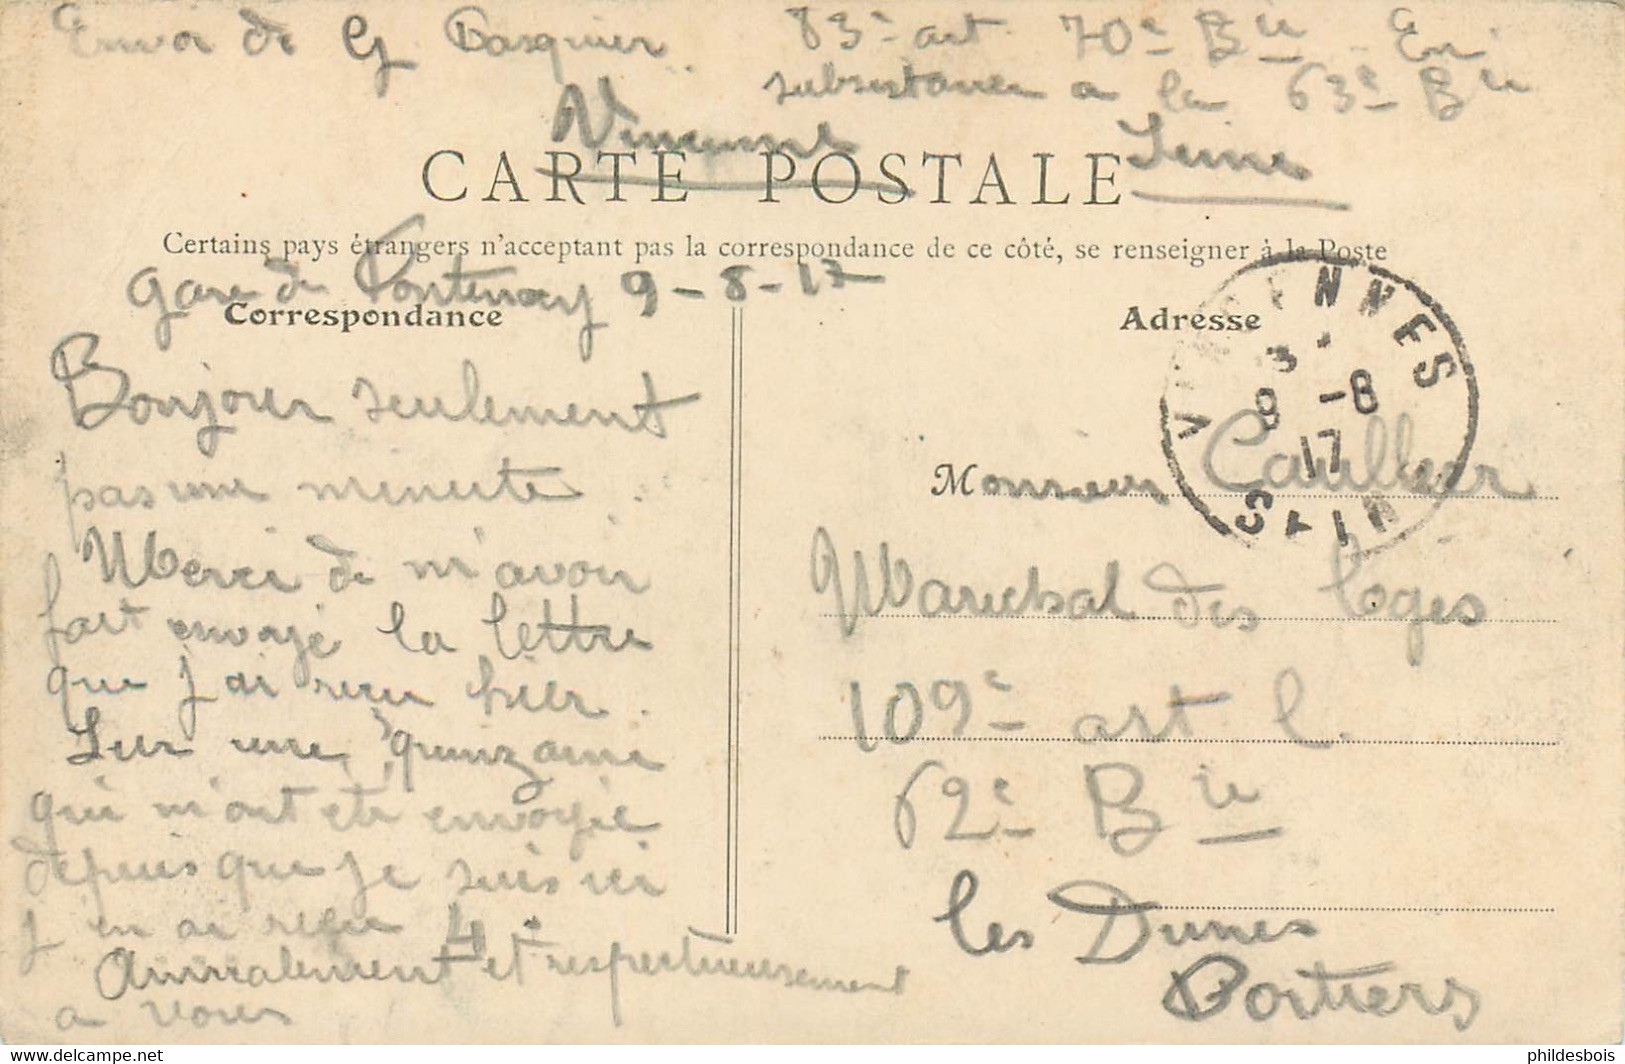 Envoi de G Pasquier 83e art 70e Bie En
subsistance a la 63e Bie
Vincennes Seine
CARTE POSTALE
Certains pays étrangers n'acceptant pas la correspondance de ce côté, se renseigner à la Poste
Gare de Fontenay 9-8-17
Correspondance
Bonjour seulement
pas une minute
Merci de m'avoir
fait envoyé la lettre
que j'ai reçu hier.
Sur une quinzaine
qui m'ont été envoyié
depuis que je suis ici
j en ai reçu 4.
Amicalement et respectueusement
a vous
Adresse
VINCENNES
3
9 -8
17
SEINE
Monsieur Caulber
Marechal des loges
109e art l.
62e Bie
les Dunes
Poitiers
phildesbois